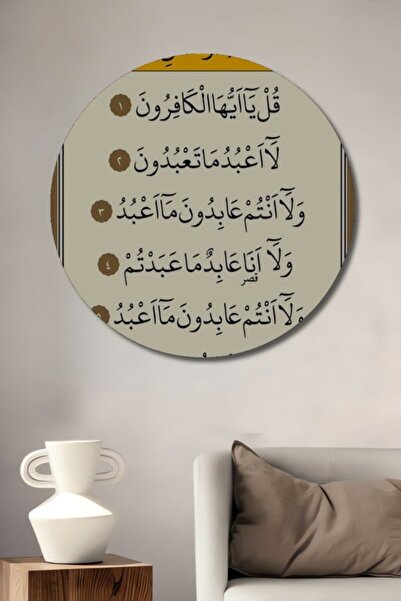 قُلْ يَٓا اَيُّهَا الْكَافِرُونَ ١
لَٓا اَعْبُدُ مَا تَعْبُدُونَ ٢
وَلَٓا اَنْتُمْ عَابِدُونَ مَٓا اَعْبُدُ ٣
وَلَٓا اَنَا عَابِدٌ مَا عَبَدْتُمْ ٤
قصر
وَلَٓا اَنْتُمْ عَابِدُونَ مَٓا اَعْبُدُ